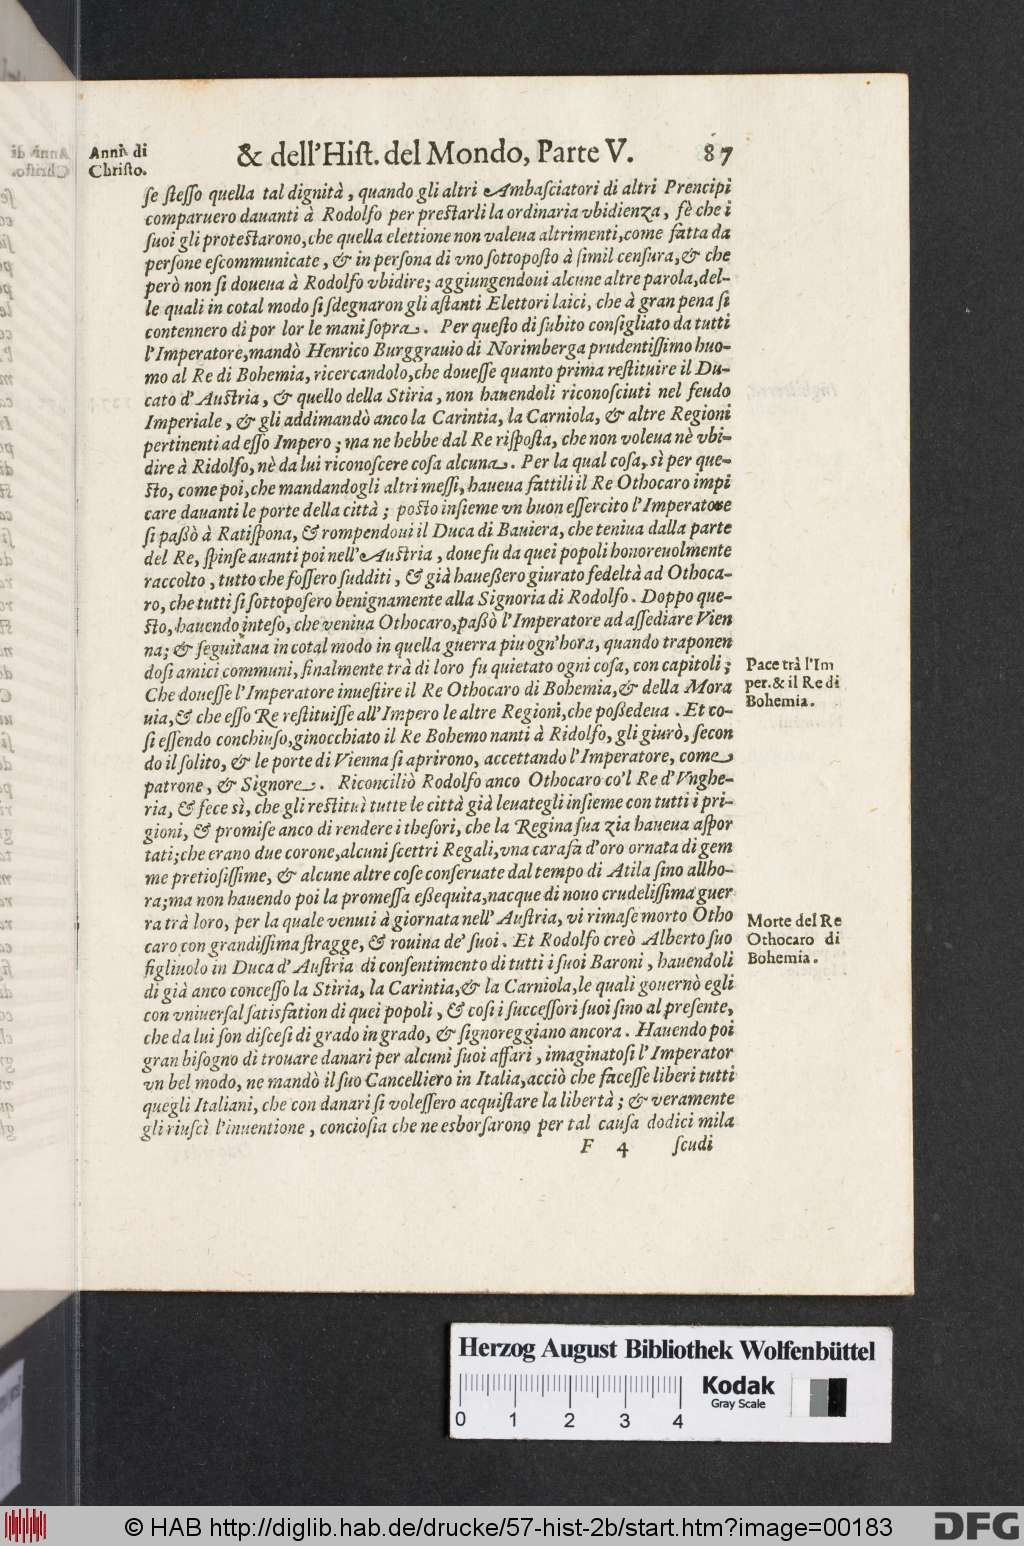 Anni di
Chriſto.
& dell'Hiſt. del Mondo, Parte V.
87
ſe ſteſſo quella tal dignità, quando gli altri Ambaſciatori di altri Prencipi
comparuero dauanti à Rodolfo per preſtarli la ordinaria vbidienza, fè che i
ſuoi gli proteſtarono, che quella elettione non valeua altrimenti, come fatta da
perſone eſcommunicate, & in perſona di vno ſottopoſto à ſimil cenſura, & che
però non ſi doueua à Rodolfo vbidire; aggiungendoui alcune altre parola, del-
le quali in cotal modo ſi ſdegnaron gli aſtanti Elettori laici, che à gran pena ſi
contennero di por lor le mani ſopra. Per queſto di ſubito conſigliato da tutti
l'Imperatore, mandò Henrico Burggrauio di Norimberga prudentiſſimo huo-
mo al Re di Bohemia, ricercandolo, che doueſſe quanto prima reſtituire il Du-
cato d'Auſtria, & quello della Stiria, non hauendoli riconoſciuti nel feudo
Imperiale, & gli addimandò anco la Carintia, la Carniola, & altre Regioni
pertinenti ad eſſo Impero; ma ne hebbe dal Re riſpoſta, che non voleua nè vbi-
dire à Ridolfo, nè da lui riconoſcere coſa alcuna. Per la qual coſa, sì per que-
ſto, come poi, che mandandogli altri meſſi, haueua fattili il Re Othocaro impi
care dauanti le porte della città; poſto inſieme vn buon eſſercito l'Imperatore
ſi paßò à Ratiſpona, & rompendoui il Duca di Bauiera, che teniua dalla parte
del Re, ſpinſe auanti poi nell'Auſtria, doue fu da quei popoli honoreuolmente
raccolto, tutto che foſſero ſudditi, & già haueßero giurato fedeltà ad Othoca-
ro, che tutti ſi ſottopoſero benignamente alla Signoria di Rodolfo. Doppo que-
ſto, hauendo inteſo, che veniua Othocaro, paßò l'Imperatore ad aſſediare Vien
na; & ſeguitaua in cotal modo in quella guerra piu ogn'hora, quando traponen
doſi amici communi, finalmente trà di loro fu quietato ogni coſa, con capitoli;
Che doueſſe l'Imperatore inueſtire il Re Othocaro di Bohemia, & della Mora
uia, & che eſſo Re reſtituiſſe all'Impero le altre Regioni, che poßedeua. Et co-
ſi eſſendo conchiuſo, ginocchiato il Re Bohemo nanti à Ridolfo, gli giurò, ſecon
do il ſolito, & le porte di Vienna ſi aprirono, accettando l'Imperatore, come
patrone, & Signore. Riconciliò Rodolfo anco Othocaro co'l Re d'Vnghe-
ria, & fece sì, che gli reſtituì tutte le città già leuategli inſieme con tutti i pri-
gioni, & promiſe anco di rendere i theſori, che la Regina ſua zia haueua aſpor
tati; che erano due corone, alcuni ſcettri Regali, vna carafa d'oro ornata di gem
me pretioſiſſime, & alcune altre coſe conſeruate dal tempo di Atila ſino allho-
ra; ma non hauendo poi la promeſſa eßequita, nacque di nouo crudeliſſima guer
ra trà loro, per la quale venuti à giornata nell'Auſtria, vi rimaſe morto Otho
caro con grandiſſima ſtragge, & rouina de' ſuoi. Et Rodolfo creò Alberto ſuo
figliuolo in Duca d'Auſtria di conſentimento di tutti i ſuoi Baroni, hauendoli
di già anco conceſſo la Stiria, la Carintia, & la Carniola, le quali gouernò egli
con vniuerſal ſatisfation di quei popoli, & coſi i ſucceſſori ſuoi ſino al preſente,
che da lui ſon diſceſi di grado in grado, & ſignoreggiano ancora. Hauendo poi
gran biſogno di trouare danari per alcuni ſuoi affari, imaginatoſi l'Imperator
vn bel modo, ne mandò il ſuo Cancelliero in Italia, acciò che faceſſe liberi tutti
quegli Italiani, che con danari ſi voleſſero acquiſtare la libertà; & veramente
gli riuſcì l'inuentione, concioſia che ne esborſarono per tal cauſa dodici mila
F 4 ſcudi
Pace trà l'Im
per. & il Re di
Bohemia.
Morte del Re
Othocaro di
Bohemia.
Herzog August Bibliothek Wolfenbüttel
Kodak
Gray Scale
0 1 2 3 4
© HAB http://diglib.hab.de/drucke/57-hist-2b/start.htm?image=00183
DFG